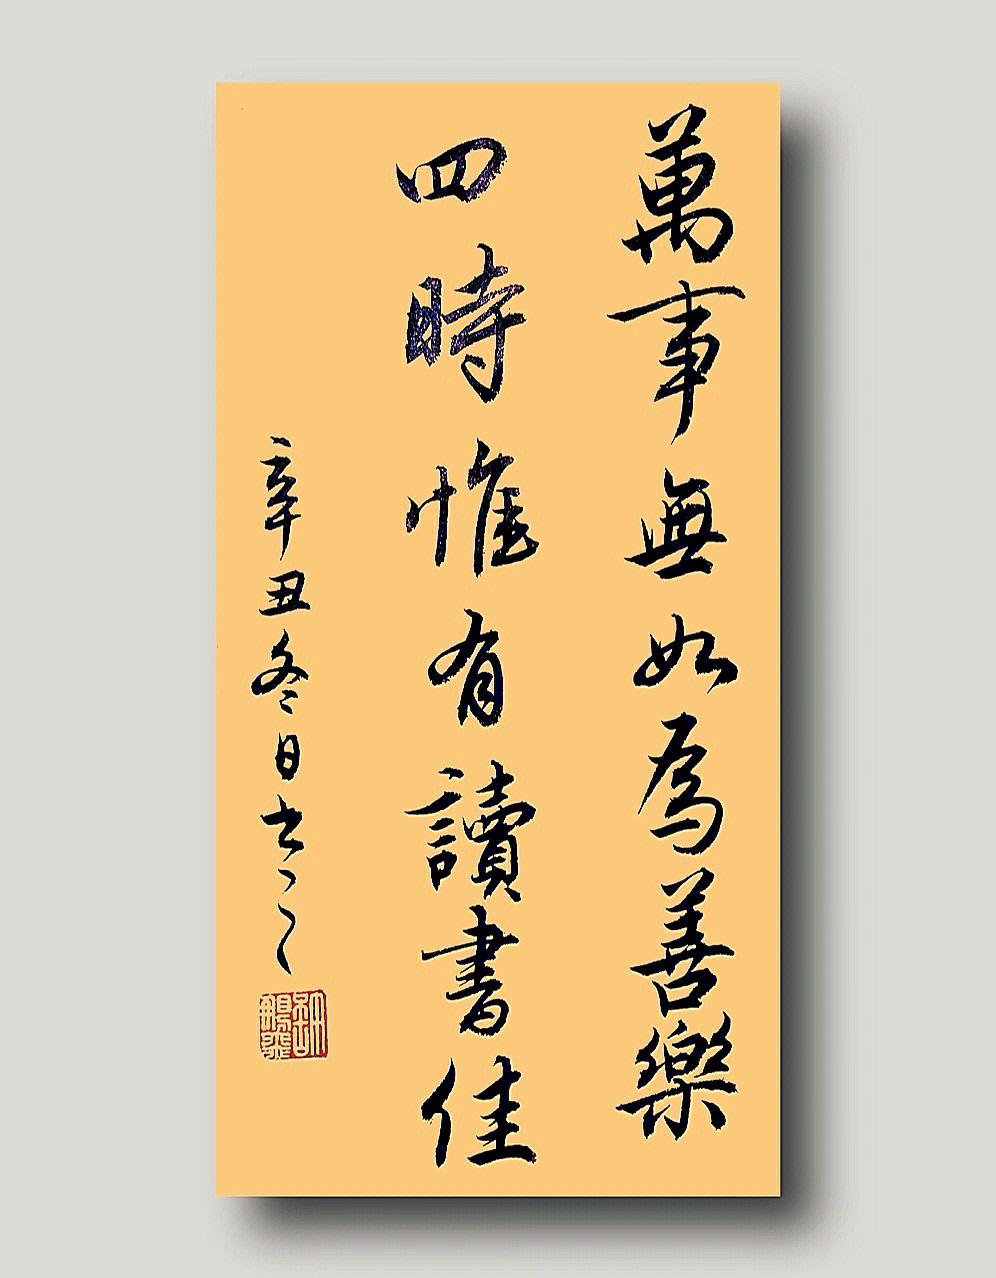 萬事無如為善樂
四時惟有讀書佳
辛丑冬日書